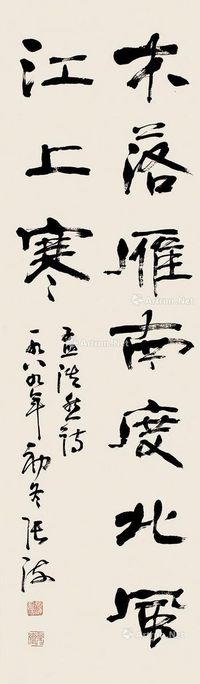 木落雁南度北風
江上寒
孟浩然詩
一九八九年初冬張海